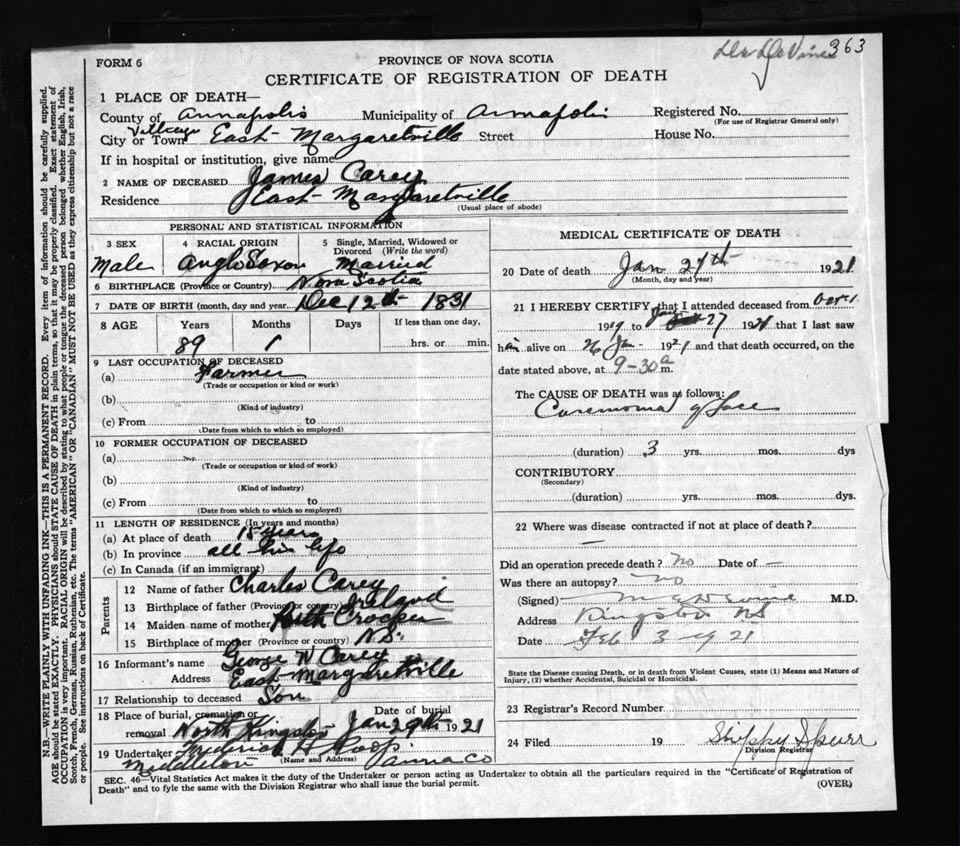 363
FORM 6
PROVINCE OF NOVA SCOTIA
CERTIFICATE OF REGISTRATION OF DEATH
1 PLACE OF DEATH—
County of Annapolis Municipality of Annapolis Registered No.
(For use of Registrar General only)
Village
City or Town East Margaretville Street House No.
If in hospital or institution, give name
2 NAME OF DECEASED James Carey
Residence East Margaretville
(Usual place of abode)
PERSONAL AND STATISTICAL INFORMATION
3 SEX 4 RACIAL ORIGIN 5 Single, Married, Widowed or
Divorced (Write the word)
Male Anglo Saxon Married
6 BIRTHPLACE (Province or Country) Nova Scotia
7 DATE OF BIRTH (month, day and year) Dec 12th 1831
8 AGE Years Months Days If less than one day,
89 1 hrs. or min.
9 LAST OCCUPATION OF DECEASED
(a) Farmer
(Trade or occupation or kind of work)
(b)
(Kind of industry)
(c) From to
(Date from which to which so employed)
10 FORMER OCCUPATION OF DECEASED
(a)
(Trade or occupation or kind of work)
(b)
(Kind of industry)
(c) From to
(Date from which to which so employed)
11 LENGTH OF RESIDENCE (In years and months)
(a) At place of death 15 years
(b) In province all his life
(c) In Canada (if an immigrant)
Parents
12 Name of father Charles Carey
13 Birthplace of father (Province or country) Ireland
14 Maiden name of mother Ruth Crocker
15 Birthplace of mother (Province or country) N.S.
16 Informant's name George W Carey
Address East Margaretville
17 Relationship to deceased Son
18 Place of burial, cremation or Date of burial
removal North Kingston Jan 29th 1921
19 Undertaker Frederick H Roop
(Name and Address)
Middleton Anna Co
MEDICAL CERTIFICATE OF DEATH
20 Date of death Jan 27th 1921
(Month, day and year)
21 I HEREBY CERTIFY, that I attended deceased from Oct 1
1919 to Jan 27 1921 that I last saw
him alive on 26 Jan- 1921 and that death occurred, on the
date stated above, at 9-30 a m.
The CAUSE OF DEATH was as follows:
Carcinoma of face
(duration) 3 yrs. mos. dys
CONTRIBUTORY
(Secondary)
(duration) yrs. mos. dys.
22 Where was disease contracted if not at place of death?
—
Did an operation precede death? No Date of —
Was there an autopsy? no
(Signed) M.D.
Address Kingston NS
Date Feb 3 - 1921
State the Disease causing Death, or in death from Violent Causes, state (1) Means and Nature of
Injury, (2) whether Accidental, Suicidal or Homicidal.
23 Registrar's Record Number
24 Filed 19 Spurr
Division Registrar
SEC. 46—Vital Statistics Act makes it the duty of the Undertaker or person acting as Undertaker to obtain all the particulars required in the "Certificate of Registration of
Death" and to fyle the same with the Division Registrar who shall issue the burial permit. (OVER)
N.B.—WRITE PLAINLY WITH UNFADING INK—THIS IS A PERMANENT RECORD. Every item of information should be carefully supplied.
AGE should be stated EXACTLY. PHYSICIANS should STATE CAUSE OF DEATH in plain terms, so that it may be properly classified. Exact statement of
OCCUPATION is very important. RACIAL ORIGIN will be described by stating to what people or tongue the deceased person belonged whether English, Irish,
Scotch, French, German, Russian, Ruthenian, etc. The terms "AMERICAN" OR "CANADIAN" MUST NOT BE USED as they express citizenship but not a race
or people. See instructions on back of Certificate.